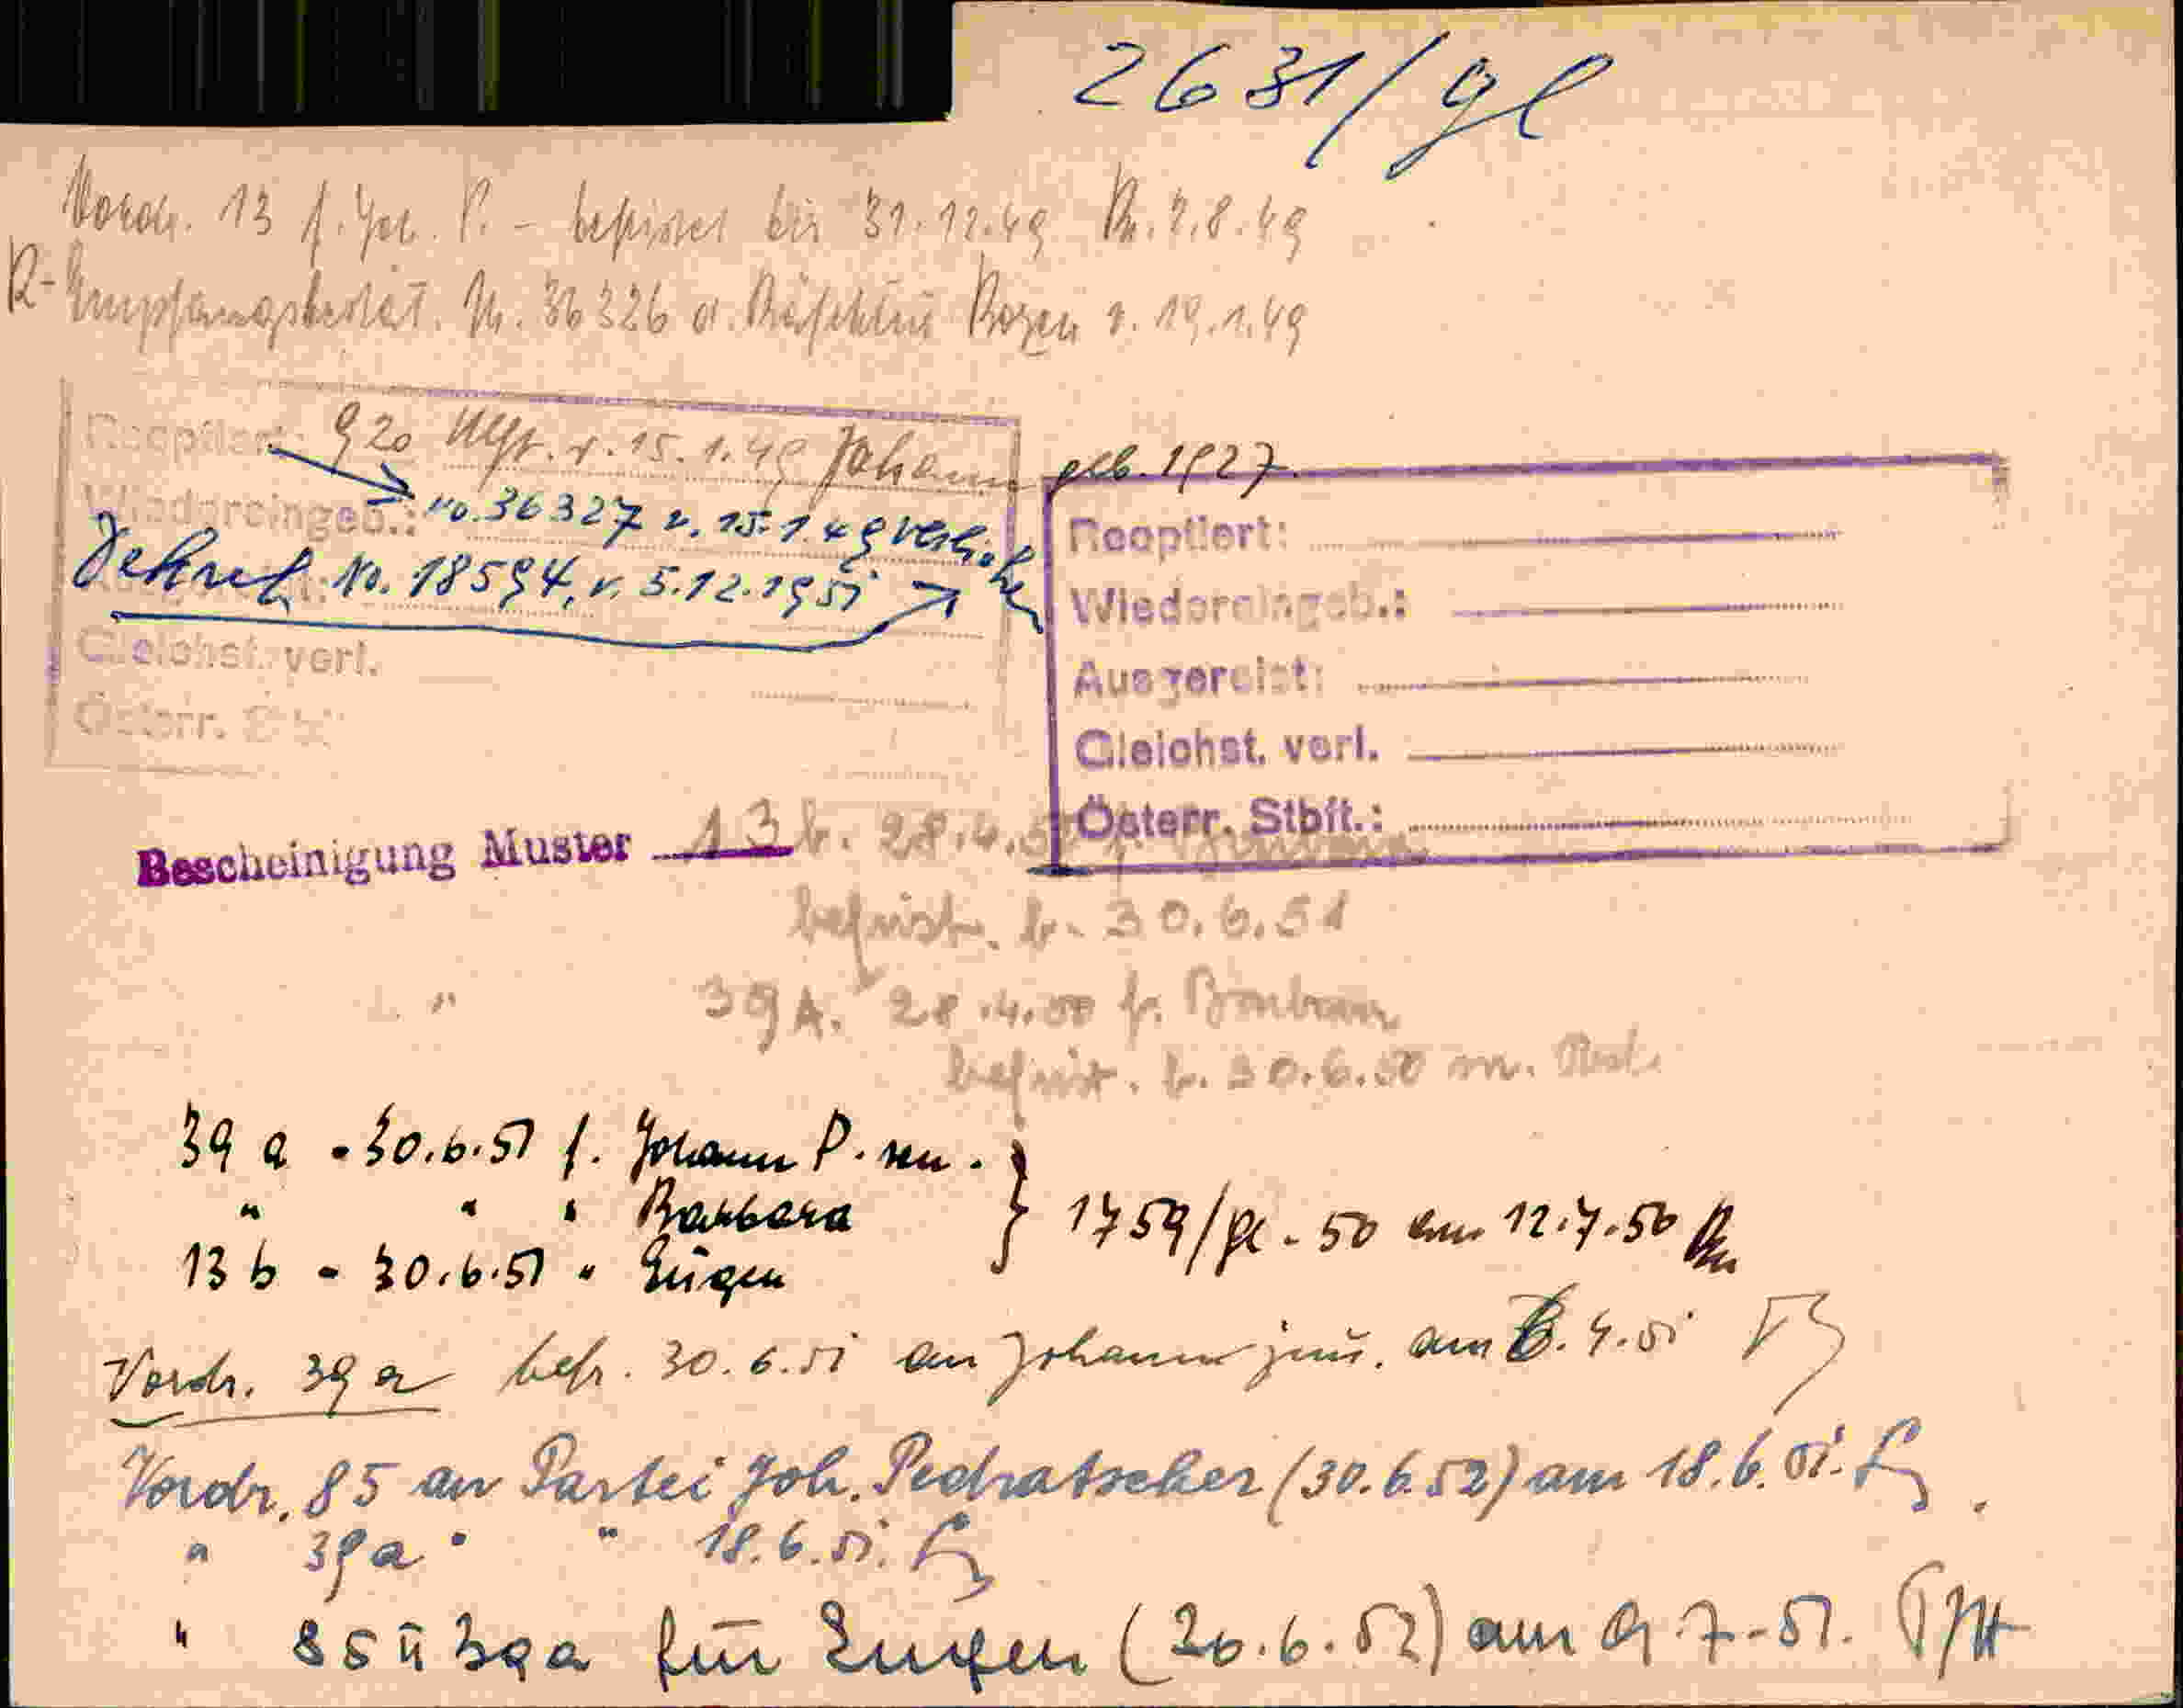 2631/gl
Vordr. 13 f. Joh. P. - befristet bis 31.12.49 2.8.49
R- Nr. 36326 d. Präfektur Bozen v. 19.1.49
Reoptiert: 920 v. 15.1.49 Johann geb. 1927
Wiedereingeb.: No. 36327 v. 15.1.49 verliehen
Dekret No. 18594, v. 5.12.1951
Gleichst. verl.
Österr.
Reoptiert:
Wiedereingeb.:
Ausgereist:
Gleichst. verl.
Österr. Stbft.:
Bescheinigung Muster 13 b. 28.4.50 f. Barbara
befrist. b. 30.6.51
" 39 A. 28.4.50 f. Barbara
befrist. b. 30.6.50 m.
39 a - 30.6.51 f. Johann P. sen. }
" " " Barbara } 1759/gl - 50 am 12.7.50
13 b - 30.6.51 " Eugen }
Vordr. 39 a befr. 30.6.51 an Johann jun. am 6.4.51
Vordr. 85 an Partei Joh. Pedratscher (30.6.52) am 18.6.51.
" 39a " " 18.6.51.
" 85 ü 39a für Eugen (30.6.52) am 9.7.-51.